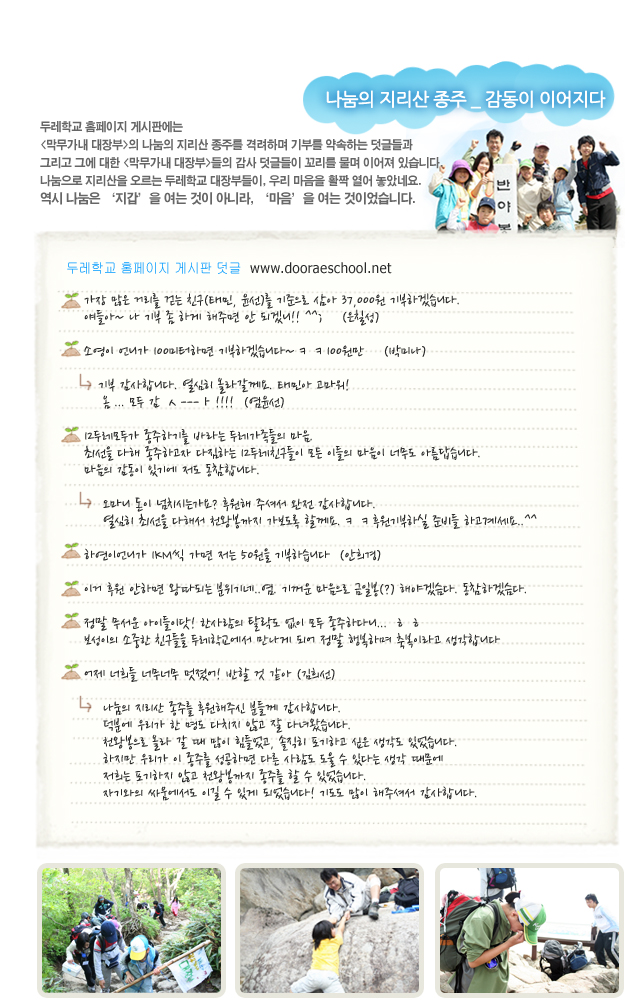 나눔의 지리산 종주 _ 감동이 이어지다
두레학교 홈페이지 게시판에는
<막무가내 대장부>의 나눔의 지리산 종주를 격려하며 기부를 약속하는 덧글들과
그리고 그에 대한 <막무가내 대장부>들의 감사 덧글들이 꼬리를 물며 이어져 있습니다.
나눔으로 지리산을 오르는 두레학교 대장부들이, 우리 마음을 활짝 열어 놓았네요.
역시 나눔은 ‘지갑’을 여는 것이 아니라, ‘마음’을 여는 것이었습니다.
반야봉
두레학교 홈페이지 게시판 덧글 www.dooraeschool.net
가장 많은 거리를 걷는 친구(태민, 윤선)를 기준으로 삼아 37,000원 기부하겠습니다.
얘들아~ 나 기부 좀 하게 해주면 안 되겠니!! ^^; (은칠성)
소영이 언니가 100미터하면 기부하겠습니다~ ㅋ ㅋ 100원만 (박미나)
기부 감사합니다. 열심히 올라갈께요. 태민아 고마워!
음 ... 모두 감 ㅅ --- ㅏ !!!! (염윤선)
12두레모두가 종주하기를 바라는 두레가족들의 마음.
최선을 다해 종주하고자 다짐하는 12두레친구들이 모든 이들의 마음이 너무도 아름답습니다.
마음의 감동이 있기에 저도 동참합니다.
오마나 돈이 넘치시는가요? 후원해 주셔서 완전 감사합니다.
열심히 최선을 다해서 천왕봉까지 가보도록 할께요. ㅋ ㅋ 후원기부하실 준비들 하고계세요..^^
하연이언니가 1KM씩 가면 저는 50원을 기부하습니다 (안희경)
이거 후원 안하면 왕따되는 분위기네..염. 기꺼운 마음으로 금일봉(?) 해야겠슴다. 동참하겠슴다.
정말 무서운 아이들이닷! 한사람의 탈락도 없이 모두 종주하다니... ㅎ ㅎ
보성이의 소중한 친구들을 두레학교에서 만나게 되어 정말 행복하며 축복이라고 생각합니다
어제 너희들 너무너무 멋졌어! 반할 것 같아 (김희선)
나눔의 지리산 종주를 후원해주신 분들께 감사합니다.
덕분에 우리가 한 명도 다치지 않고 잘 다녀왔습니다.
천왕봉으로 올라 갈 때 많이 힘들었고, 솔직히 포기하고 싶은 생각도 있었습니다.
하지만 우리가 이 종주를 성공하면 다른 사람도 도울 수 있다는 생각 때문에
저희는 포기하지 않고 천왕봉까지 종주를 할 수 있었습니다.
자기와의 싸움에서도 이길 수 있게 되었습니다! 기도도 많이 해주셔서 감사합니다.